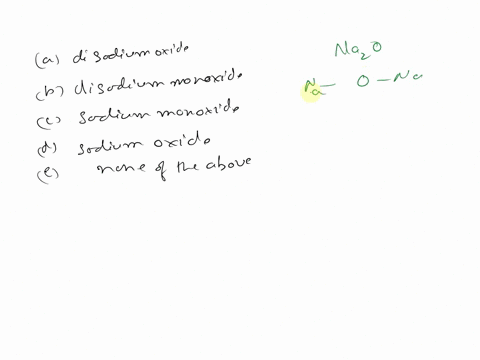 (a) disodium oxide
(b) disodium monoxide
(c) sodium monoxide
(d) sodium oxide
(e) none of the above
Na₂O
Na - O - Na